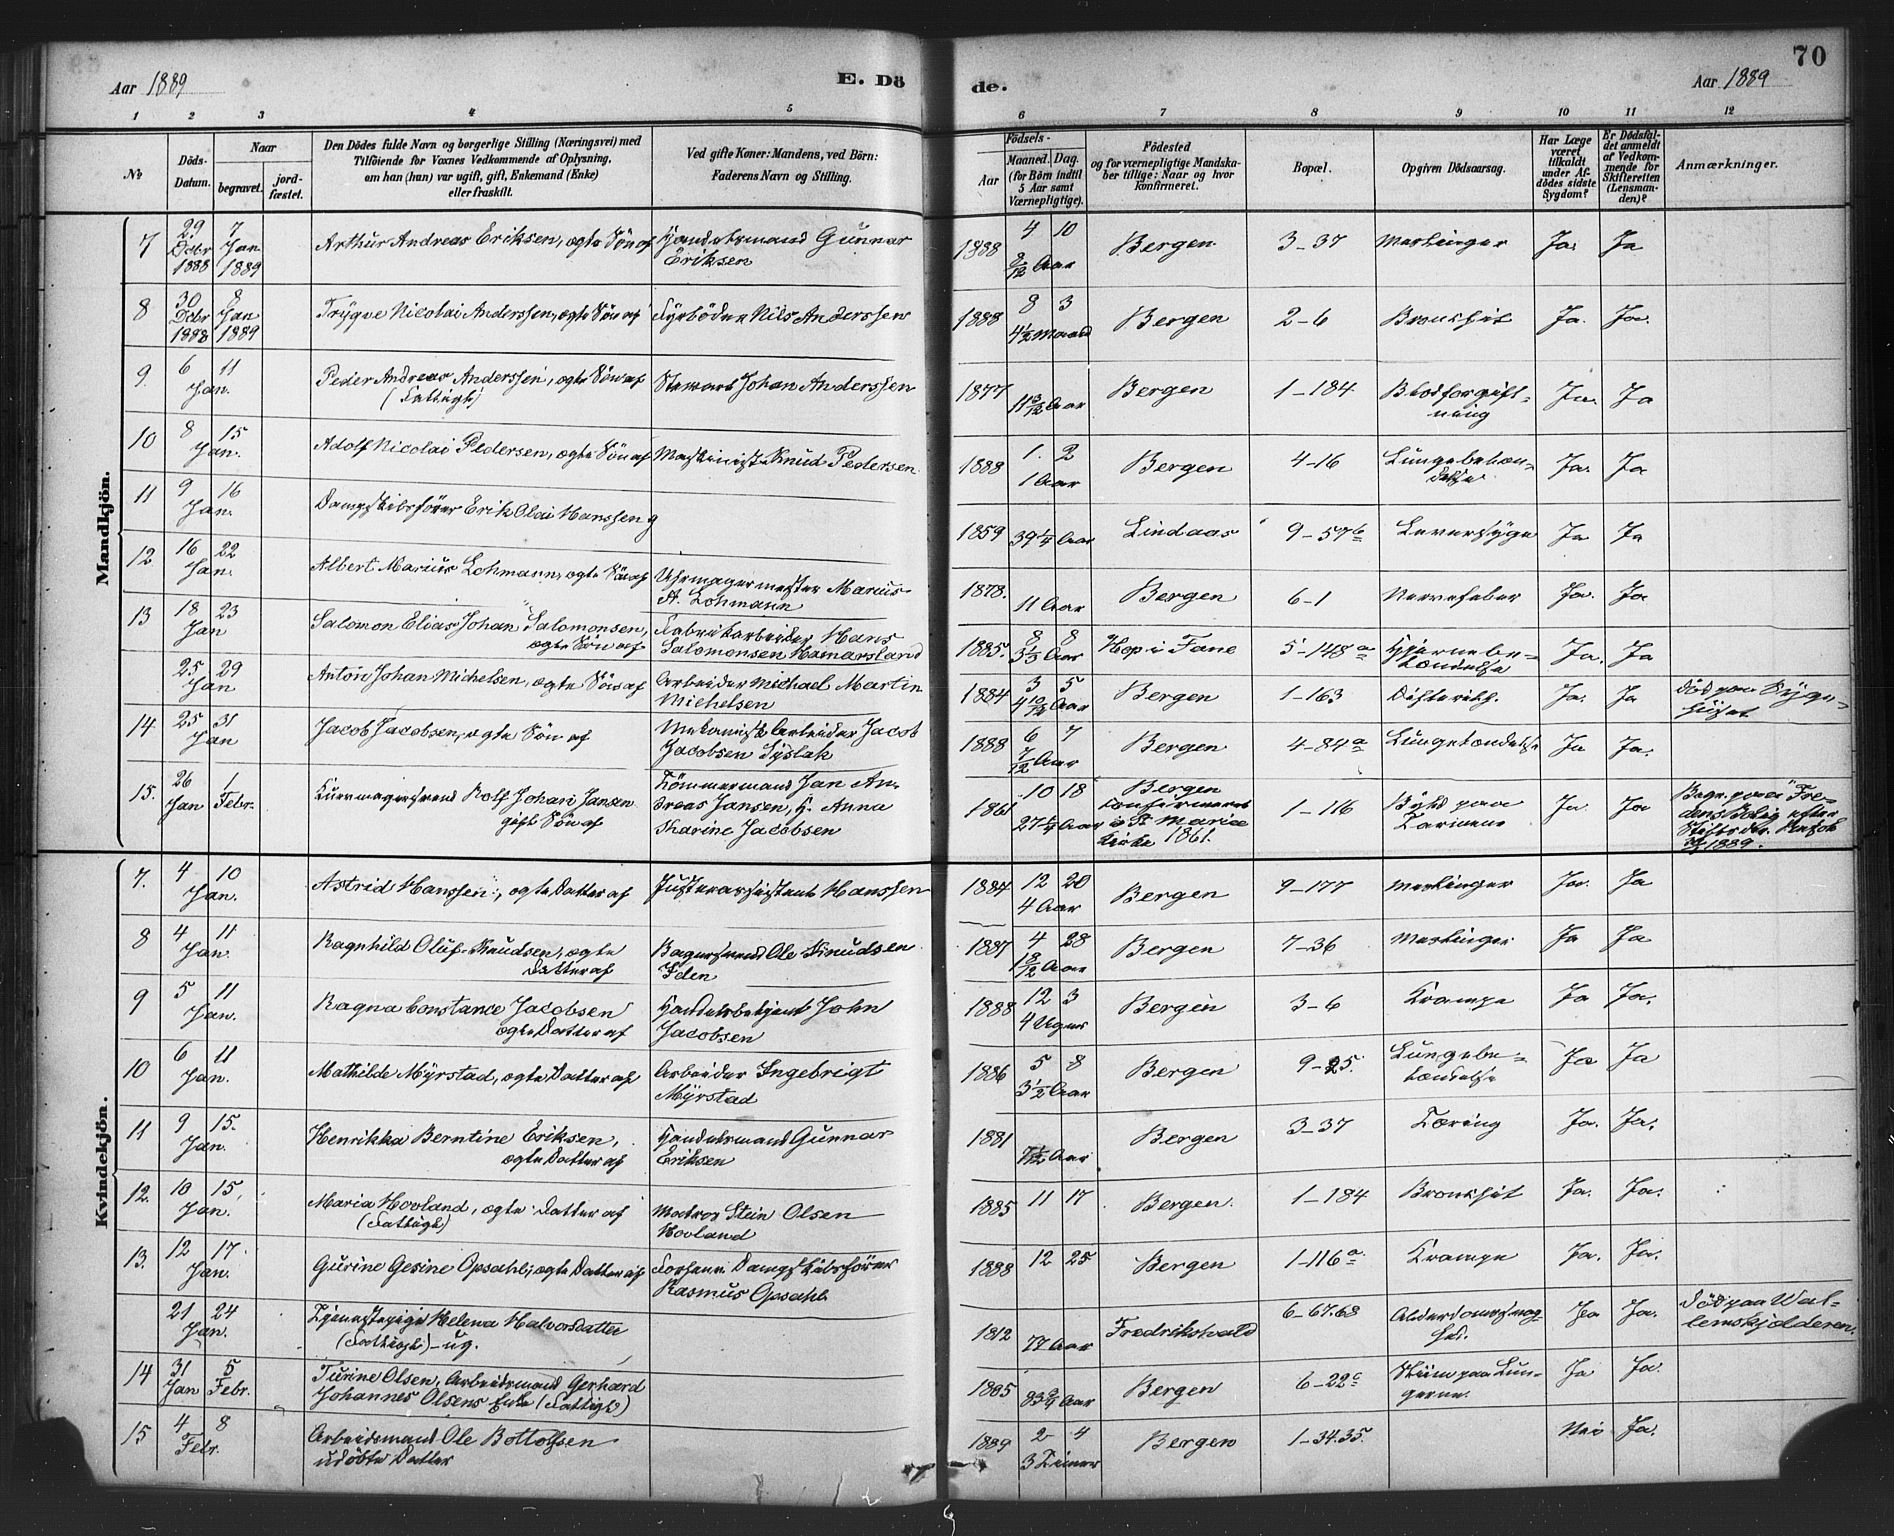 70
Aar 1889
E. Dö
de.
Aar 1889
1 2 3 4 5 6 7 8 9 10 11 12
No
Döds-Datum.
Naar
begravet.
jordfæstet.
Den Dödes fulde Navn og borgerlige Stilling (Næringsvei) med
Tilföiende for Voxnes Vedkommende af Oplysning,
om han (hun) var ugift, gift, Enkemand (Enke)
eller fraskilt.
Ved gifte Koner: Mandens, ved Börn:
Faderens Navn og Stilling.
Födsels-
Aar
Maaned. Dag.
(for Börn indtil
5 Aar samt
Værnepligtige).
Födested
og for værnepligtige Mandska-
ber tillige: Naar og hvor
konfirmeret.
Bopæl.
Opgiven Dödsaarsag.
Har Læge
været
tilkaldt
under Af-
dödes sidste
Sygdom?
Er Dödsfal-
det anmeldt
af Vedkom-
mende for
Skifteretten
(Lensman-
den)?
Anmærkninger.
Mandkjön.
7 29 Dcbr 1888 7 Jan 1889 Arthur Andreas Eriksen, ægte Sön af Handelsmand Gunnar Eriksen 1888 4 10 8/12 Aar Bergen 3-37 Meslinger Ja. Ja
8 30 Dcbr 1888 8 Jan 1889 Trygve Nicolai Anderssen, ægte Sön af Fyrböder Nils Anderssen 1888 8 3 4 1/2 Maaned Bergen 2-6 Bronchit Ja. Ja.
9. 6 Jan. 11 Peder Andreas Anderssen, ægte Sön af (Fattigh) Stewart Johan Anderssen 1877 11 3/12 Aar Bergen 1-184 Blodforgift-ning Ja. Ja
10 8 Jan. 15 Adolf Nicolai Pedersen, ægte Sön af Maskinist Knud Pedersen 1888 1. 2 1 Aar Bergen 4-16 Lungebetæn-delse Ja. Ja
11 9 Jan. 16 Dampskibsförer Erik Olai Hanssen g 1859 39 1/4 Aar Lindaas 9-57b Leversyge Ja Ja
12. 16 Jan. 22 Albert Marius Lohmann, ægte Sön af Uhrmagermester Marius A. Lohmann 1878. 11 Aar Bergen 6-1 Nervefeber Ja. Ja
13 18 Jan 23 Salomon Elias Johan Salomonsen, ægte Sön af Fabrikarbeider Hans Salomonsen Hamarsland 1885. 8 8 3 1/3 Aar Hop i Fane 5-148a Hjernebe-tændelse Ja. Ja
25 Jan 29 Anton Johan Michelsen, ægte Sön af Arbeider Michael Martin Michelsen 1884 3 5 4 10/12 Aar Bergen 1-163 Difterith. Ja. Ja Död paa Syge-huset
14. 25 Jan 31 Jacob Jacobsen, ægte Sön af Mekanisk Arbeider Jacob Jacobsen Syslak 1888 6 7 7/12 Aar Bergen 4-84a Lungetændelse Ja Ja.
15. 26 Jan 1 Febr. Rolf Johan Jansen gift Sön af Tömmermand Jan An-dreas Jansen, H. Anna Karine Jacobsen 1861 10 18 27 1/4 Aar Bergen konfirmeret i St Mariæ Kirke 1861. 1-116 Byld paa Tarmene Ja Ja 1889.
Kvindekjön.
7. 4 Jan. 10 Astrid Hanssen, ægte Datter af Justerassistent Hanssen 1884 12 20 4 Aar Bergen 9-177 Meslinger Ja. Ja
8 4 Jan. 11 Ragnhild Oluf-Knudsen, ægte Datter af Bagersvend Ole Knudsen Iden 1887 4 28 1 8/12 Aar Bergen 7-36 Meslinger Ja Ja
9 5 Jan. 11 Ragna Constance Jacobsen ægte Datter af Handelsbetjent John Jacobsen 1888 12 3 4 Uger Bergen 3-6 Krampe Ja Ja.
10 6 Jan. 11 Mathilde Myrstad, ægte Datter af Arbeider Ingebrigt Myrstad 1886 5 8 3 1/2 Aar Bergen 9-25. Lungebe-tændelse Ja Ja
11 9 Jan. 15. Henrikka Berntine Eriksen, ægte Datter af Handelsmand Gunnar Eriksen 1881 7 1/2 Aar Bergen 3-37 Tæring Ja. Ja.
12. 10 Jan. 15. Maria Hovland, ægte Datter af (Fattigh) Matros Stein Olsen Hovland 1885 11 17 Bergen. 1-184 Bronchit Ja. Ja.
13. 12 Jan. 17. Gurine Gesine Opsahl, ægte Datter af Forhenv. Dampskibsförer Rasmus Opsahl 1888 12 25 Bergen 1-116a Krampe Ja. Ja.
21 Jan. 24 Tjenestepige Helena Halvorsdatter (Fattigh)-ug. 1812 77 Aar Fredrikshald 6-67.68 Alderdomssvag-hed. Ja Ja. Död paa Wal-lemskjolderen.
14 31 Jan 5 Febr. Turine Olsen, Arbeidsmand Gerhard Johannes Olsens Enke (Fattigh) 1805 83 3/4 Aar Bergen 6-22c Sliim paa Lun-gerne. Ja Ja.
15 4 Febr. 8 Arbeidsmand Ole Bottolfsen udöbte Datter 1889 2 4 3 Timer Bergen 1-34.35. Nei Ja.